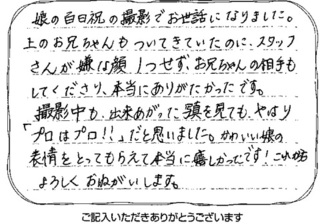 娘の百日祝の撮影でお世話になりました。
上のお兄ちゃんもついてきていたのに、スタッフ
さんが嫌な顔1つせず、お兄ちゃんの相手も
してくださり、本当にありがたかったです。
撮影中も、出来あがった頭を見ても、やはり
「プロはプロ!!」だと思いました。かわいい娘の
表情をとってもらえて本当に嬉しかったです!これからも
よろしくおねがいします。
ご記入いただきありがとうございます